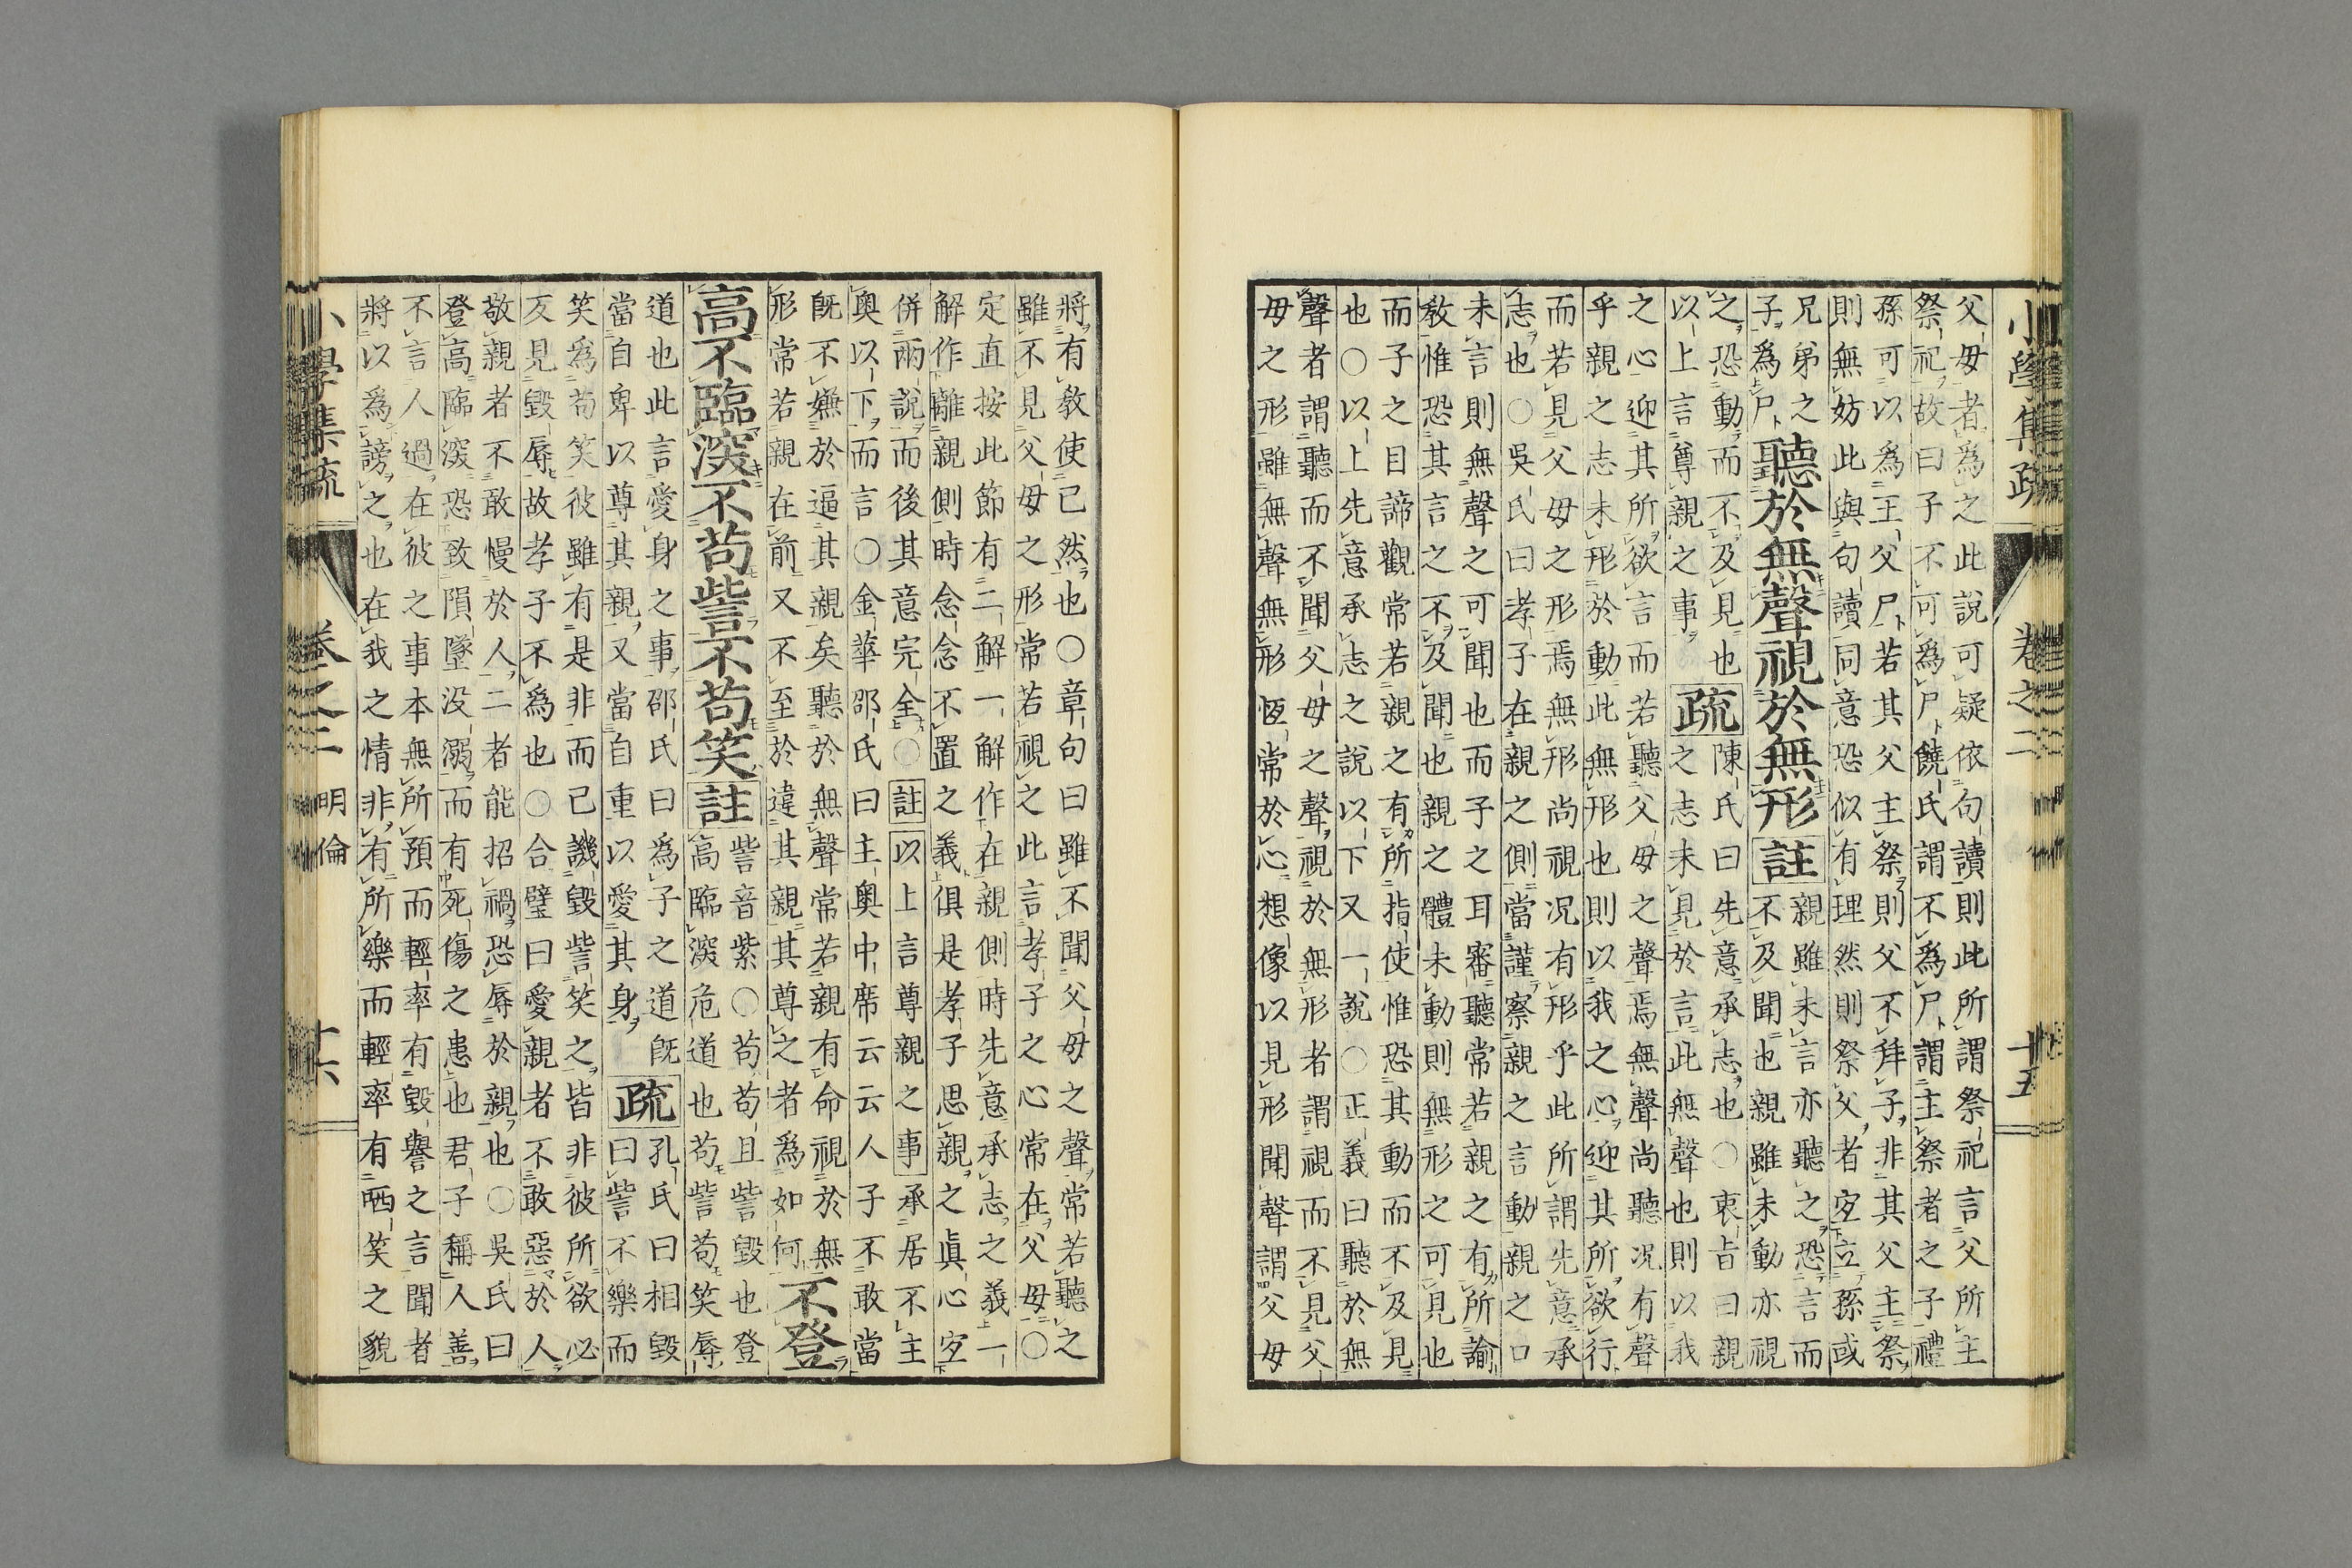 小學集疏 卷之二 十五
父母者爲之此說可疑依句讀則此所謂祭祀言父所主
祭祀故曰子不可爲尸饒氏謂不爲尸謂主祭者之子禮
孫可以爲王父尸若其父主祭則父不拜子非其父主祭
則無妨此與句讀同意恐似有理然則祭父者宜立孫或
兄弟之
子爲尸
聽於無聲視於無形
註
親雖未言亦聽之恐言而
不及聞也親雖未動亦視
之恐動而不及見也
以上言尊親之事
疏
陳氏曰先意承志也○衷旨曰親
之志未見於言此無聲也則以我
之心迎其所欲言而若聽父母之聲焉無聲尚聽况有聲
乎親之志未形於動此無形也則以我之心迎其所欲行
而若見父母之形焉無形尚視况有形乎此所謂先意承
志也○吳氏曰孝子在親之側當謹察親之言動親之口
未言則無聲之可聞也而子之耳審聽常若親之有所諭
敎惟恐其言之不及聞也親之體未動則無形之可見也
而子之目諦觀常若親之有所指使惟恐其動而不及見
也○以上先意承志之說以下又一說○正義曰聽於無
聲者謂聽而不聞父母之聲視於無形者謂視而不見父
母之形雖無聲無形恆常於心想像以見形聞聲謂父母
將有敎使已然也○章句曰雖不聞父母之聲常若聽之
雖不見父母之形常若視之此言孝子之心常在父母○
定直按此節有二解一解作在親側時先意承志之義一
解作離親側時念念不置之義俱是孝子思親之眞心宜
併兩說而後其意完全○
註
以上言尊親之事
承居不主
奥以下而言○金華邵氏曰主奥中席云云人子不敢當
旣不嫌於逼其親矣聽於無聲常若親有命視於無
形常若親在前又不至於違其親其尊之者爲如何
不登
高不臨深不苟訾不苟笑
註
訾音紫○苟苟且訾毀也登
高臨深危道也苟訾苟笑辱
道也此言愛身之事邵氏曰爲子之道旣
當自卑以尊其親又當自重以愛其身
疏
孔氏曰相毀
曰訾不樂而
笑爲苟笑彼雖有是非而己譏毀訾笑之皆非彼所欲必
反見毀辱故孝子不爲也○合璧曰愛親者不敢惡於人
敬親者不敢慢於人二者能招禍恐辱於親也○吳氏曰
登高臨深恐致隕墜没溺而有死傷之患也君子稱人善
不言人過在彼之事本無所預而輕率有毀譽之言聞者
將以爲謗之也在我之情非有所樂而輕率有哂笑之貌
小學集疏 卷之二 明倫 十六